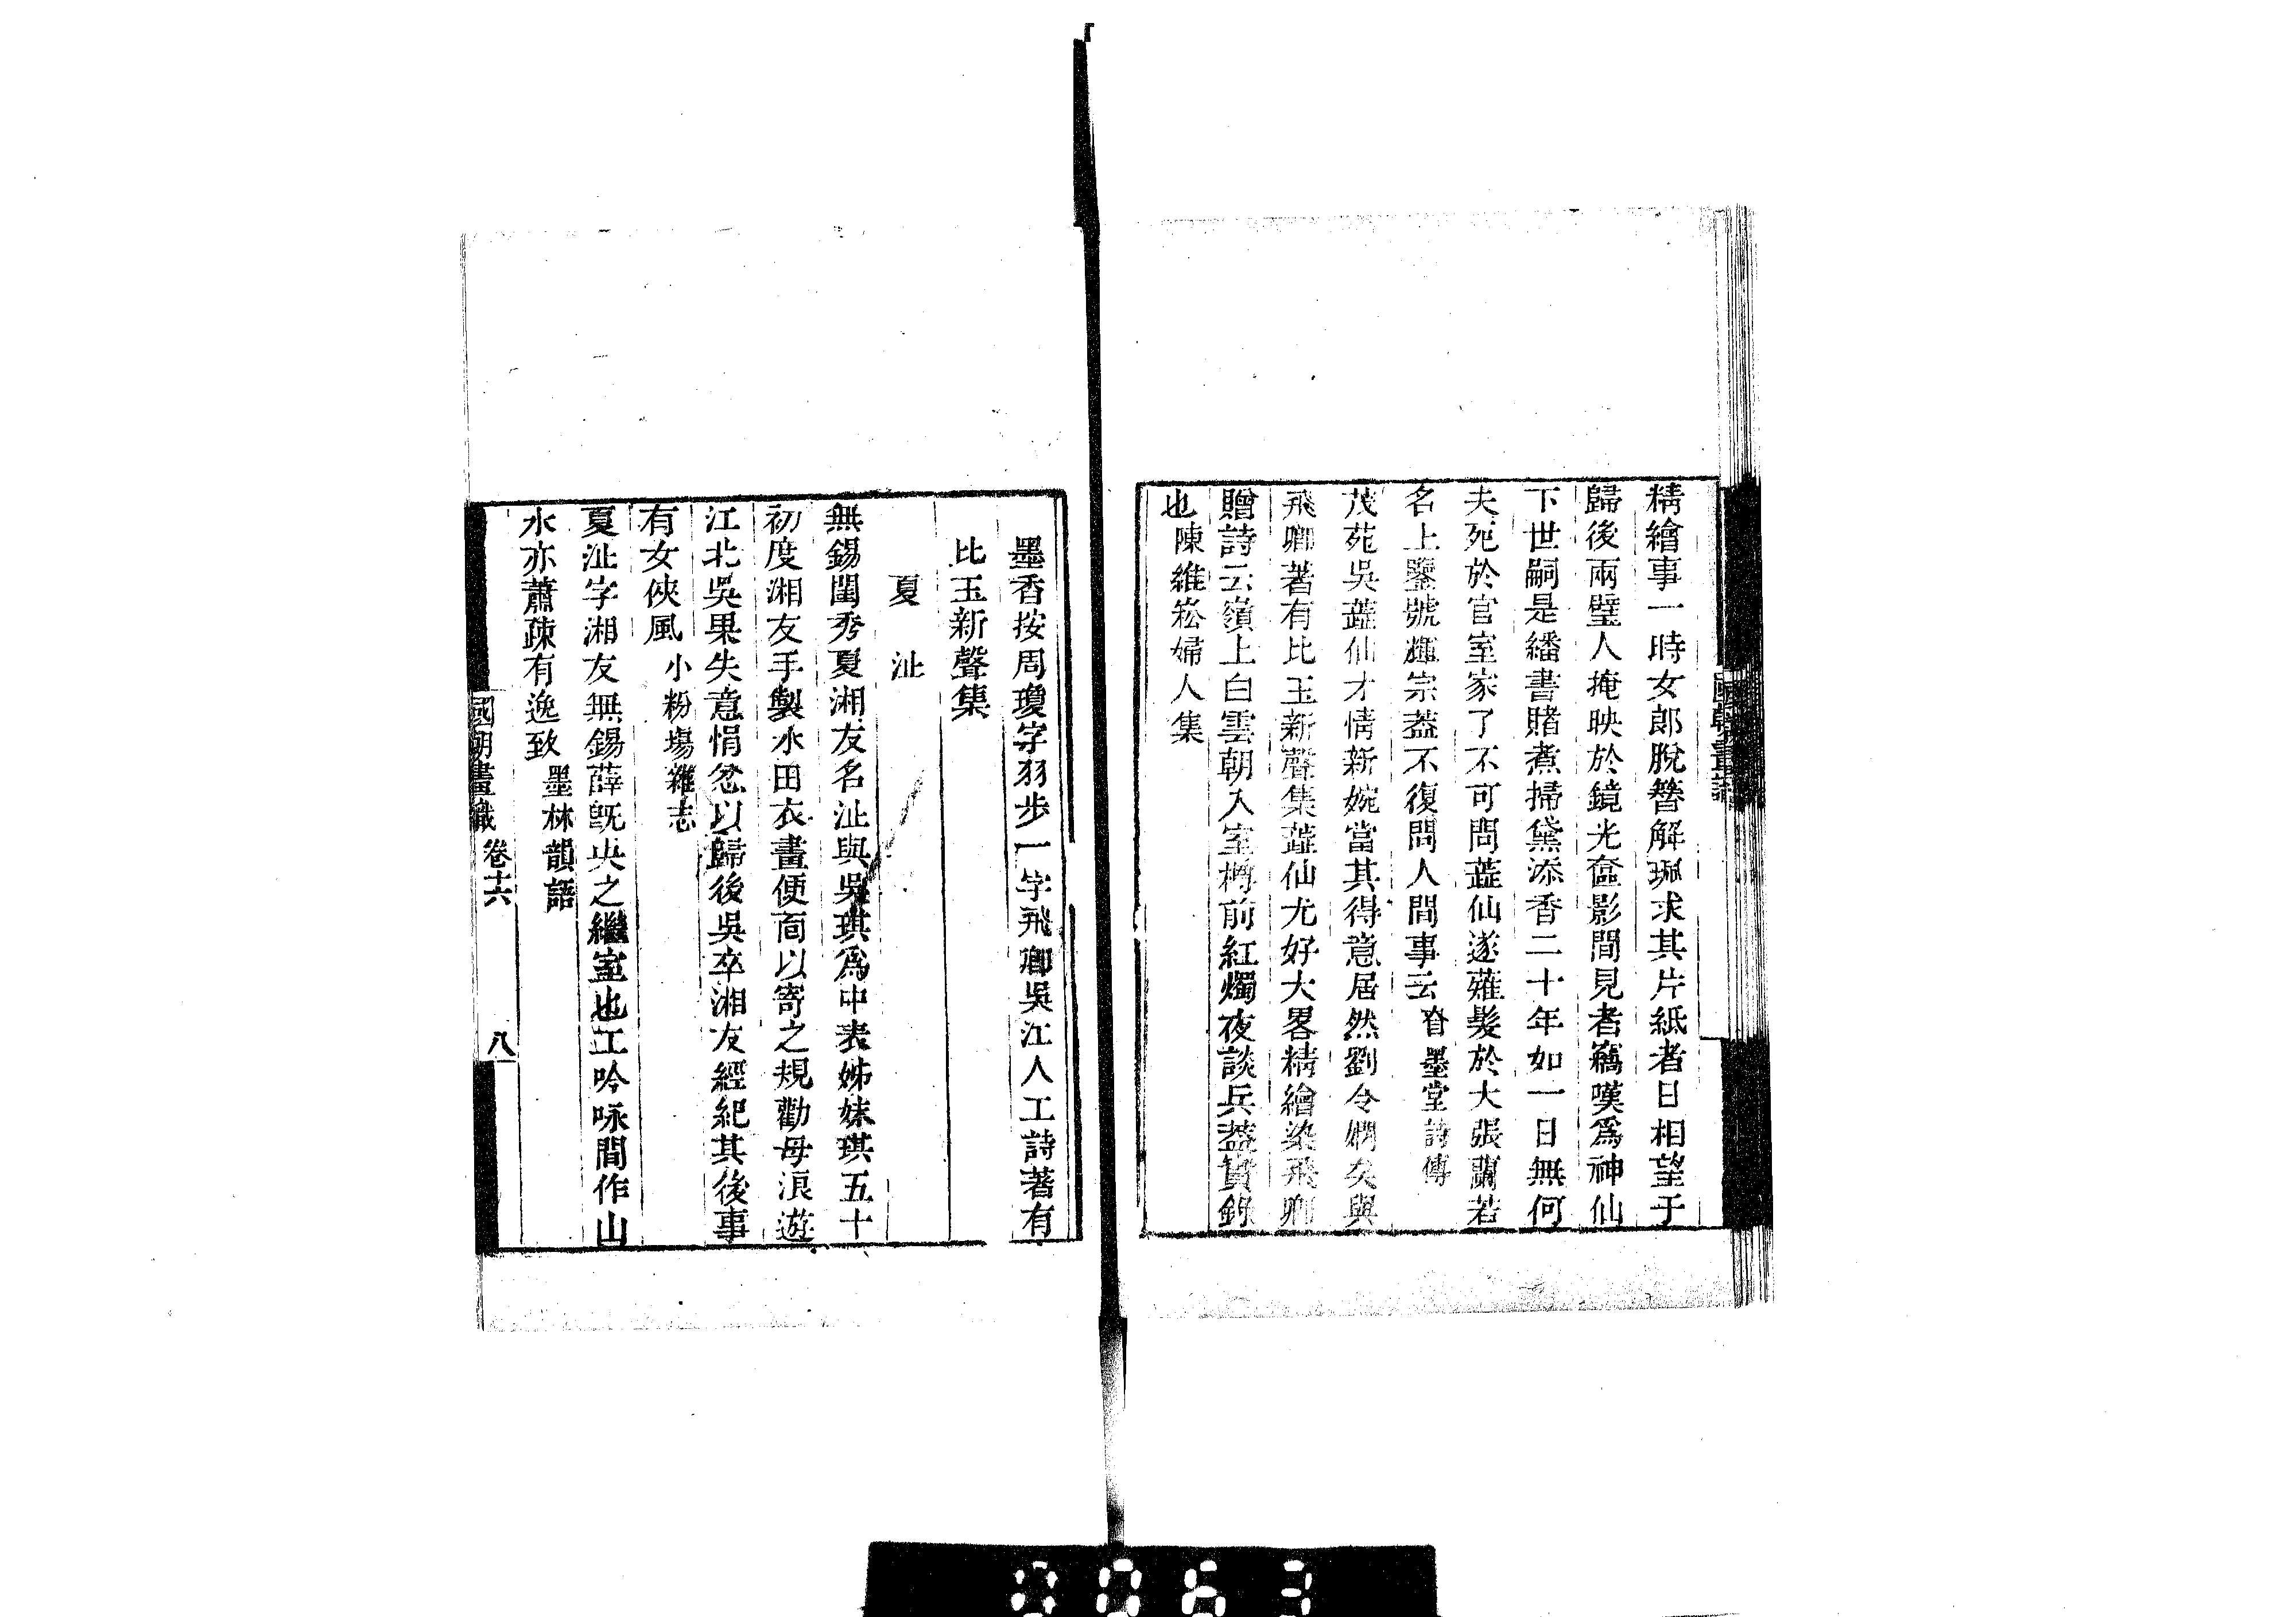 精繪事一時女郎脫簪解珮求其片紙者日相望于
歸後兩璧人掩映於鏡光奩影間見者竊嘆爲神仙
下世嗣是繙書賭煮掃黛添香二十年如一日無何
夫死於官室家了不可問蕋仙遂薙髮於大張蘭若
名上鑒號輝宗葢不復問人間事云 眘墨堂詩傳
茂苑吳蕋仙才情新婉當其得意居然劉令嫻矣與
飛卿著有比玉新聲集蕋仙尤好大畧精繪染飛卿
贈詩云嶺上白雲朝入室樽前紅燭夜談兵葢實錄
也 陳維崧婦人集
墨香按周瓊字羽步一字飛卿吳江人工詩著有
比玉新聲集
夏沚
無錫閨秀夏湘友名沚與吳琪爲中表姊妹琪五十
初度湘友手製水田衣畫便面以寄之規勸毋浪遊
江北吳果失意悁忿以歸後吳卒湘友經紀其後事
有女俠風 小粉塲雜志
夏沚字湘友無錫薛旣央之繼室也工吟咏間作山
水亦蕭疎有逸致 墨林韻語
國朝畫識 卷十六 八
0063